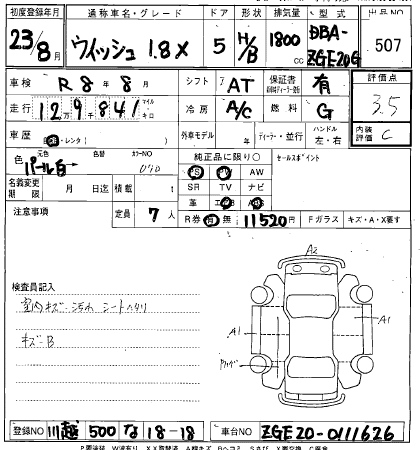 初度登録年月 通称車名・グレード ドア 形状 排気量 型式 出品NO
23/8月 ウィッシュ 1.8X 5 H/B 1800cc DBA-ZGE20G 507
車検 R8年8月 シフト AT 保証書 有 評価点
走行 129841 マイル キロ 冷房 A/C 燃料 G 3.5
車歴 ・レンタ( ) 外車モデル 年 ディーラー・並行 ハンドル 左・右 内装 C
色 元色 パール白 色替 カラーNO 070 純正品に限り○ セールスポイント
PS PW AW
名義変更期限 月 日迄 積載 t SR TV ナビ
革 エアB
注意事項 定員 7人 R券 有 無 11520円 Fガラス キズ・A・X要す
検査員記入
室内キズ・汚れ シート
キズB
A2
A1
A1
登録NO 川越 500 な 18-18 車台NO ZGE20-0111626